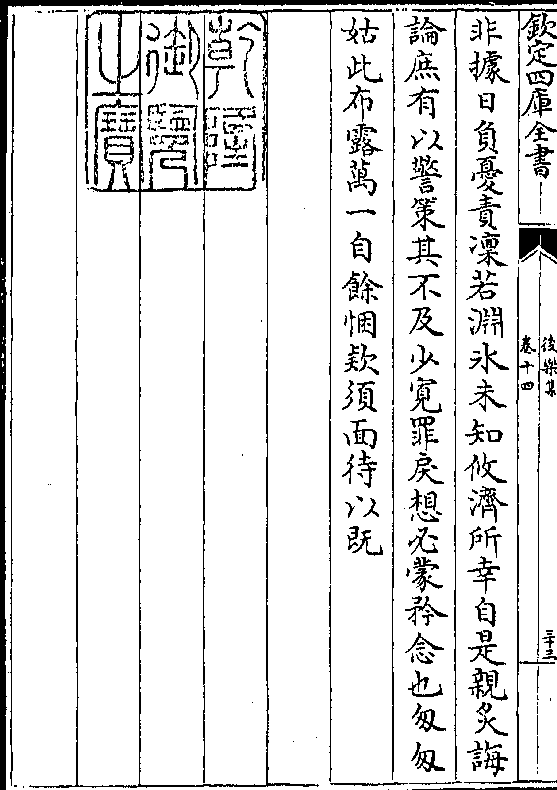 欽定四庫全書
後樂集
卷十四
三十三
非據日負憂責凜若淵氷未知攸濟所幸自是親炙誨
論庶有以警策其不及少寛罪戾想必蒙矜念也匆匆
姑此布露萬一自餘悃欵須面待以既
乾隆
御覽
之寶